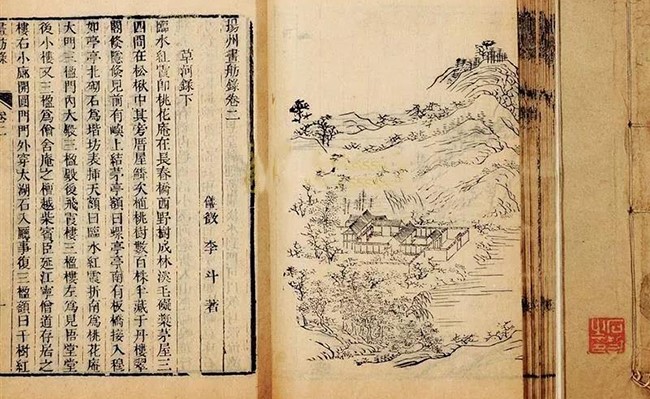 揚州畫舫錄卷二
草河錄下
儀徵 李斗 著
臨水紅霞即桃花庵在長春橋西野樹成林溪毛礙槳茅屋三
四間在松楸中其旁厝屋鱗次植桃樹數百株半藏于丹樓翠
閣倏隱倏見前有嶼上結茅亭額曰螺亭亭南有板橋接入穆
如亭亭北砌石為堦坊表插天額曰臨水紅霞折南為桃花庵
大門三楹門內大殿三楹殿後飛霞樓三楹樓左為見悟堂堂
後小樓又三楹為僧舍庵之檀越柴賓臣延江寧僧道存居之
樓右小廊開圓門門外穿太湖石入廳事復三楹額曰千樹紅
畫舫錄 卷二